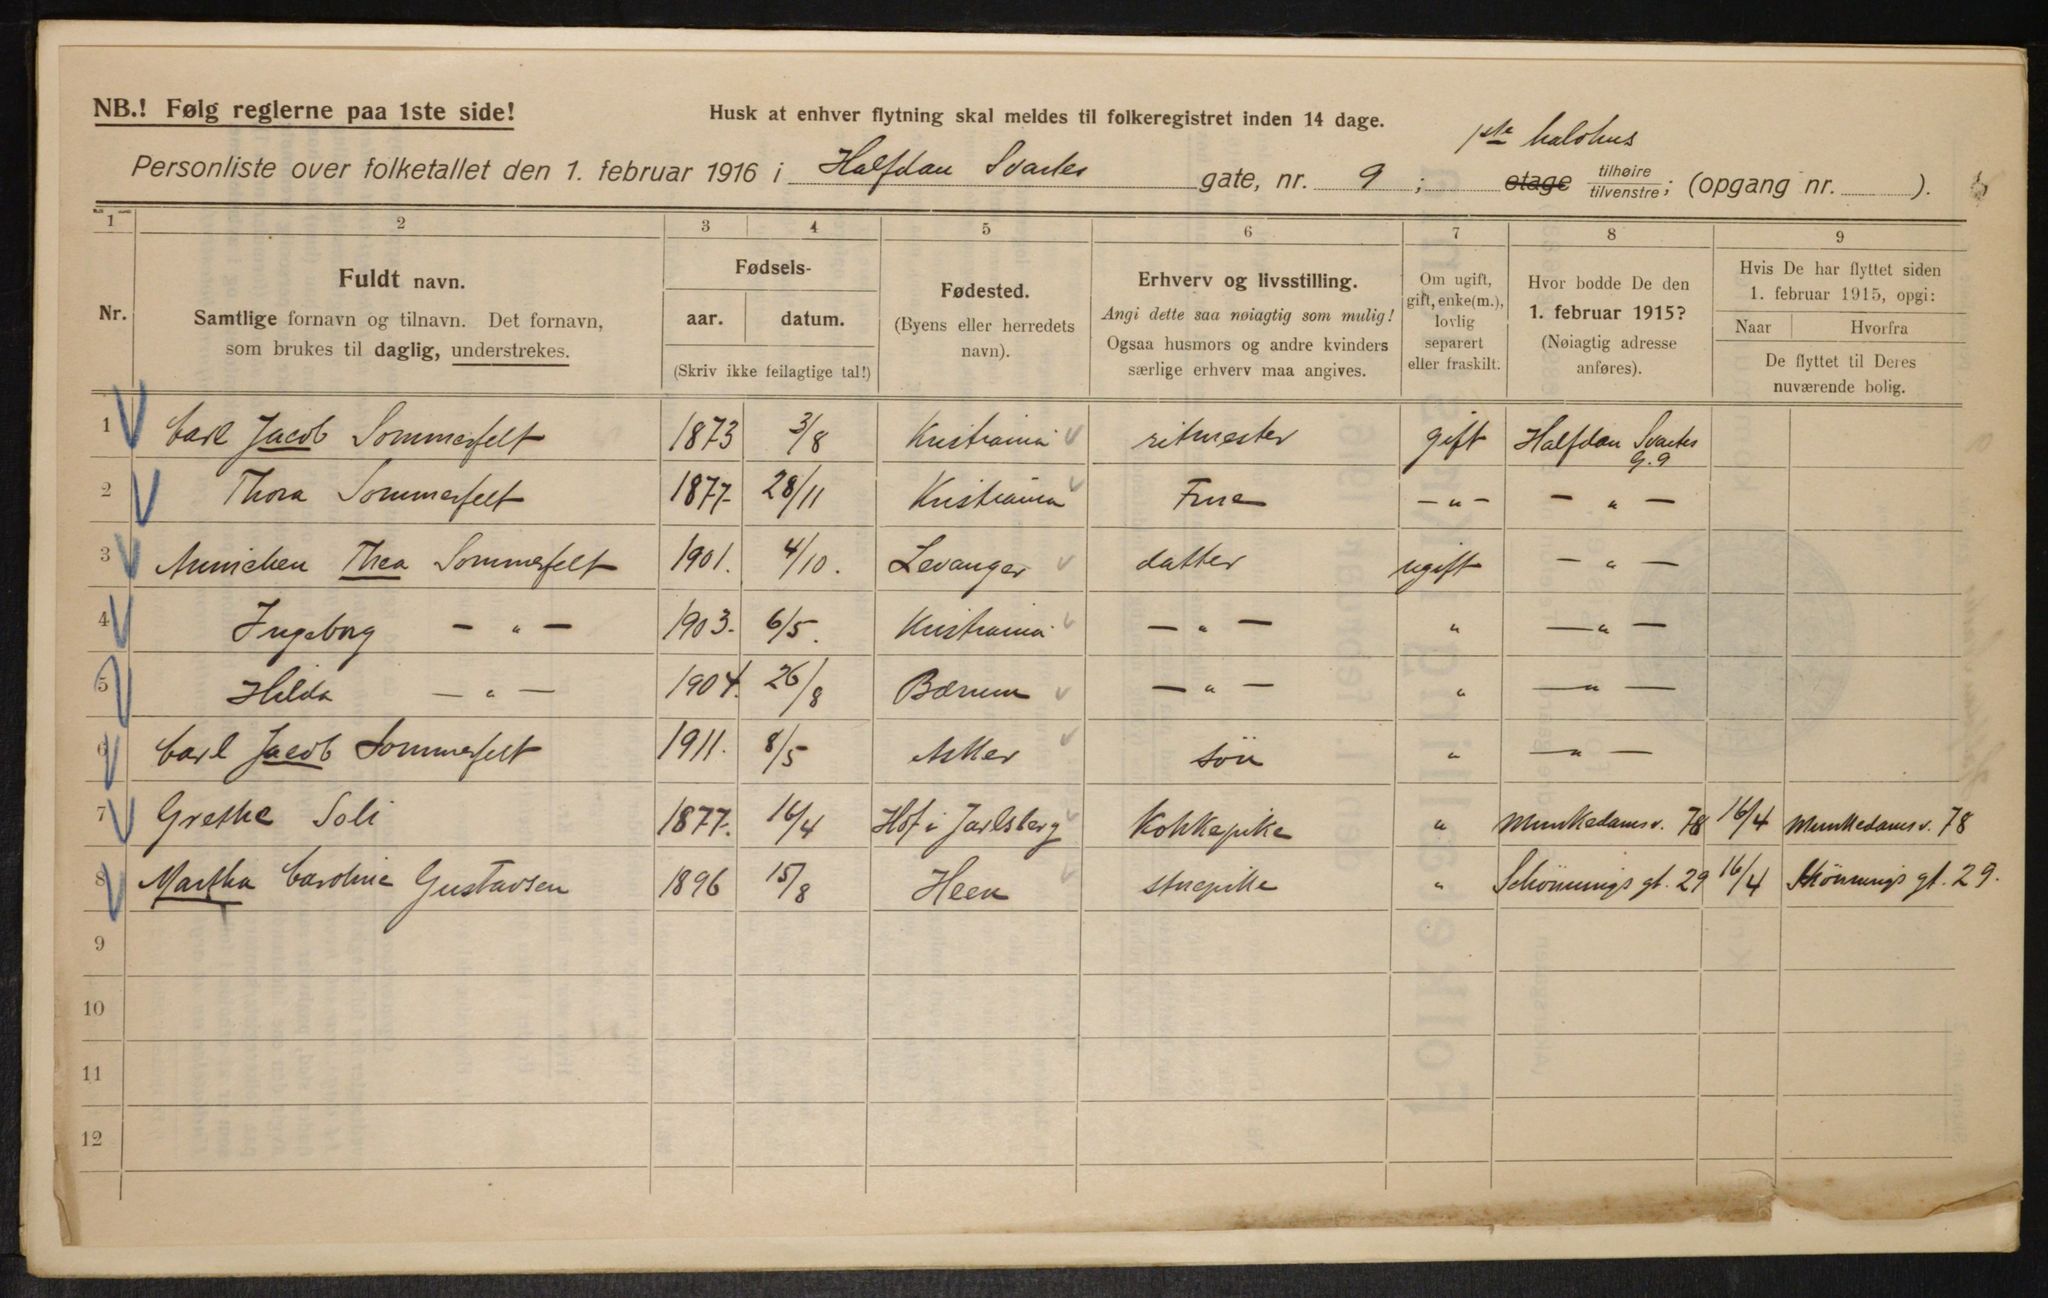 NB.! Følg reglerne paa 1ste side!
Husk at enhver flytning skal meldes til folkeregistret inden 14 dage.
1ste
Personliste over folketallet den 1. februar 1916 i Halfdan Svartes gate, nr. 9 ; etage tilhøire tilvenstre; (opgang nr. ).
1 2 3 4 5 6 7 8 9
Nr.
Fuldt navn.
Samtlige fornavn og tilnavn. Det fornavn,
som brukes til daglig, understrekes.
Fødsels-
aar. datum.
(Skriv ikke feilagtige tal!)
Fødested.
(Byens eller herredets
navn).
Erhverv og livsstilling.
Angi dette saa nøiagtig som mulig!
Ogsaa husmors og andre kvinders
særlige erhverv maa angives.
Om ugift,
gift, enke(m.),
lovlig
separert
eller fraskilt.
Hvor bodde De den
1. februar 1915?
(Nøiagtig adresse
anføres).
Hvis De har flyttet siden
1. februar 1915, opgi:
Naar Hvorfra
De flyttet til Deres
nuværende bolig.
1 Carl Jacob Sommerfelt 1873 3/8 Kristiania ritmester gift Halfdan Svartes
G. 9
2 Thora Sommerfelt 1877 28/11 Kristiania Frue — " — — " —
3 Thea Sommerfelt 1901. 4/10. Levanger datter ugift — " —
4 Ingeborg — " — 1903. 6/5. Kristiania — " — " — " —
5 Hilda — " — 1904. 26/8 Bærum — " — " — " —
6 Carl Jacob Sommerfelt 1911. 8/5 Asker søn " — " —
7 Grethe Soli 1877. 16/4 Hof i Jarlsberg Kokkepike " Munkedamsv. 78 16/4 Munkedamsv. 78
8 Martha Caroline Gustavsen 1896 15/8 Heen stuepike " Schönnings gt. 29 16/4 Schönnings gt. 29.
9
10
11
12